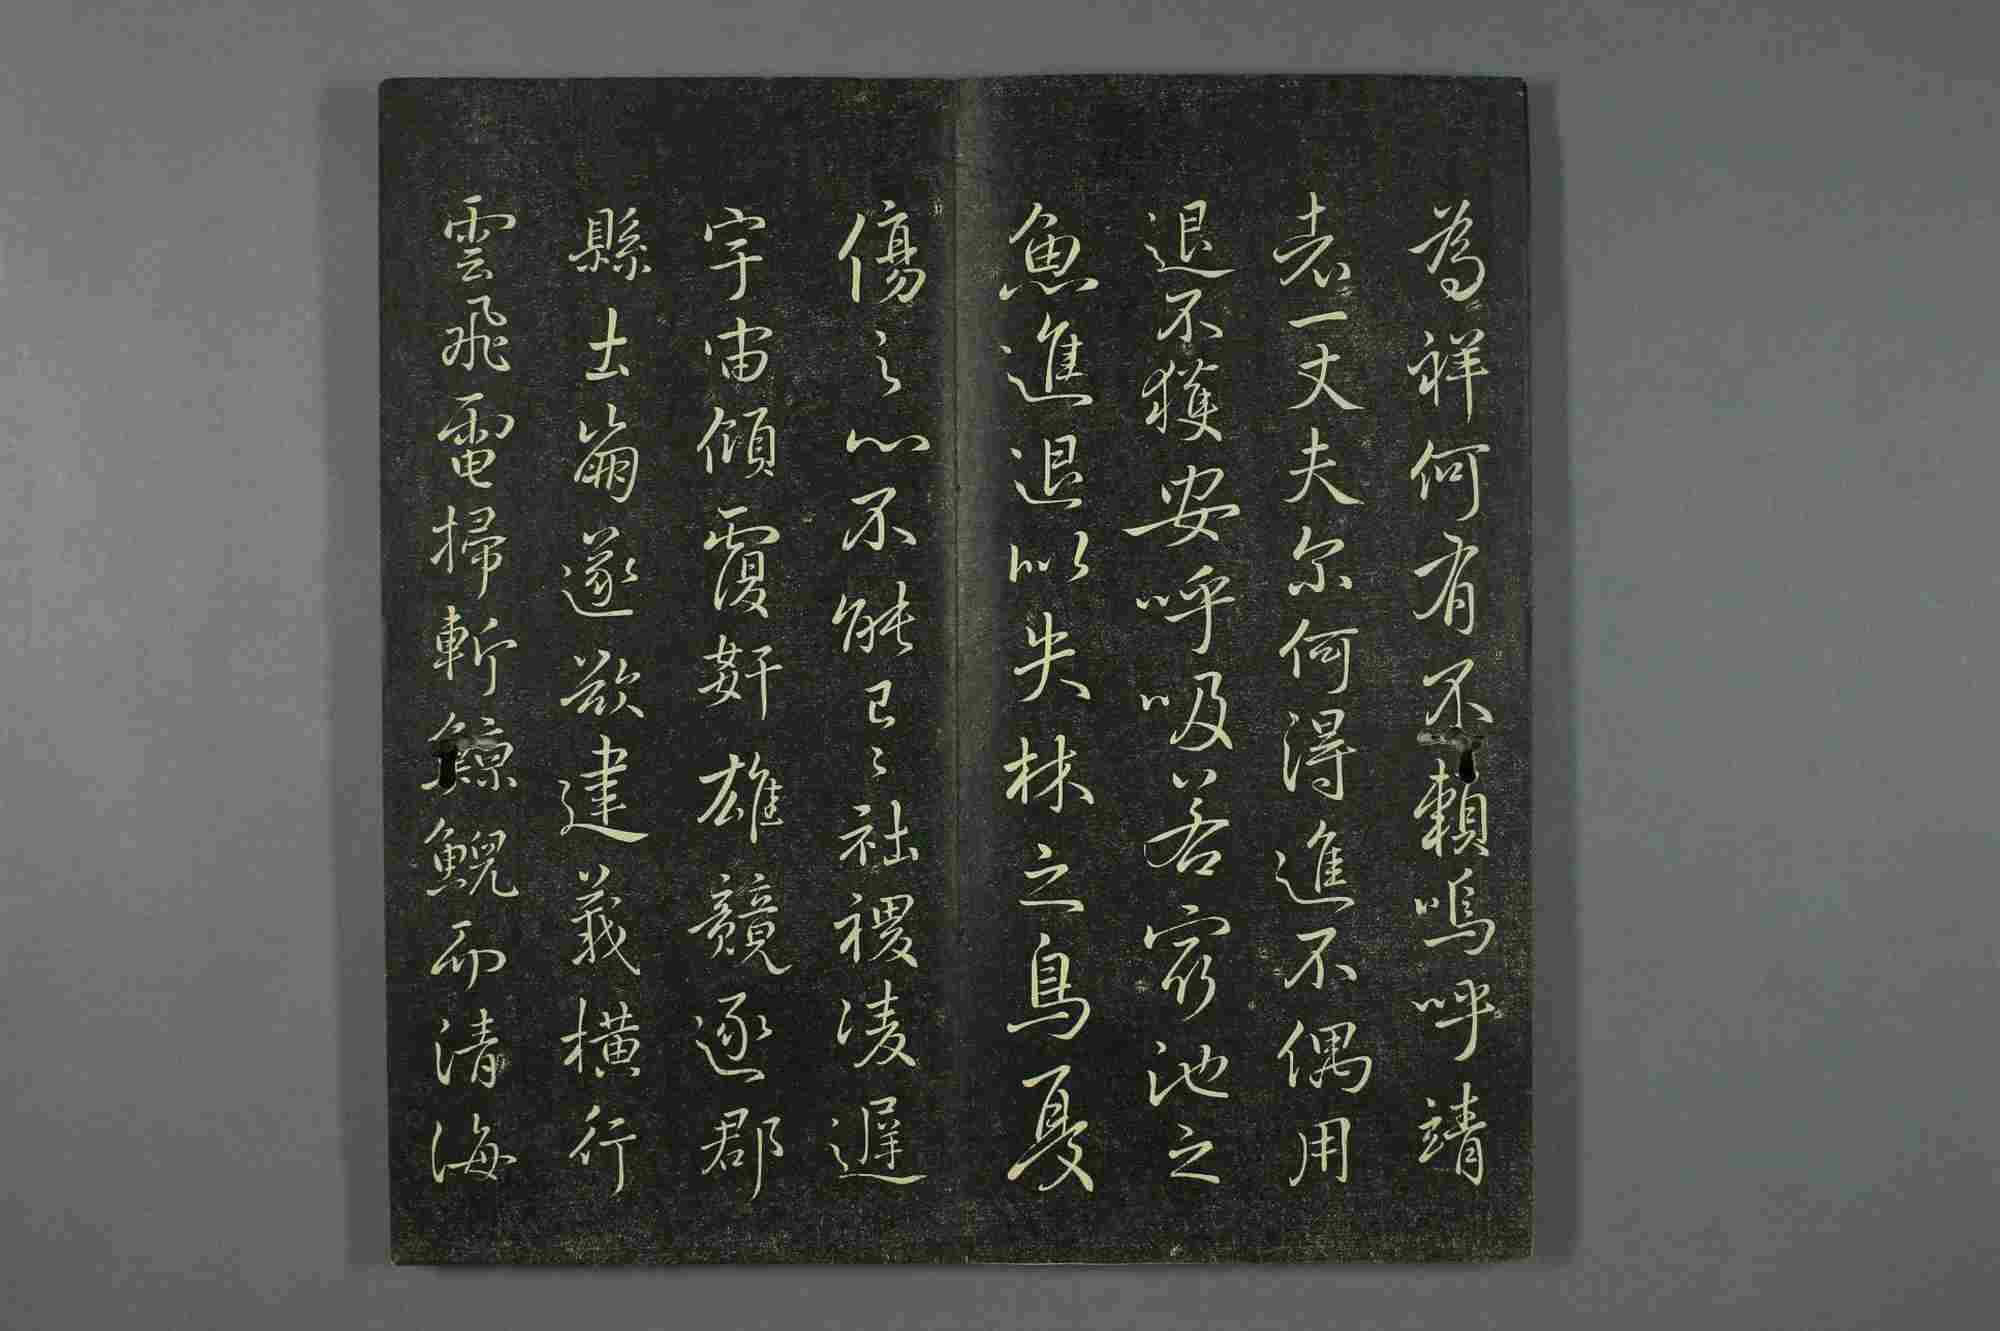 為祥何有不賴嗚呼靖
者一丈夫尔何得進不偶用
退不獲安呼吸若窮池之
魚進退以失林之鳥憂
傷之心不能已〻社稷凌遲
宇宙傾覆奸雄競逐郡
縣土崩遂欲建義橫行
雲飛電掃斬鯨鯢而清海